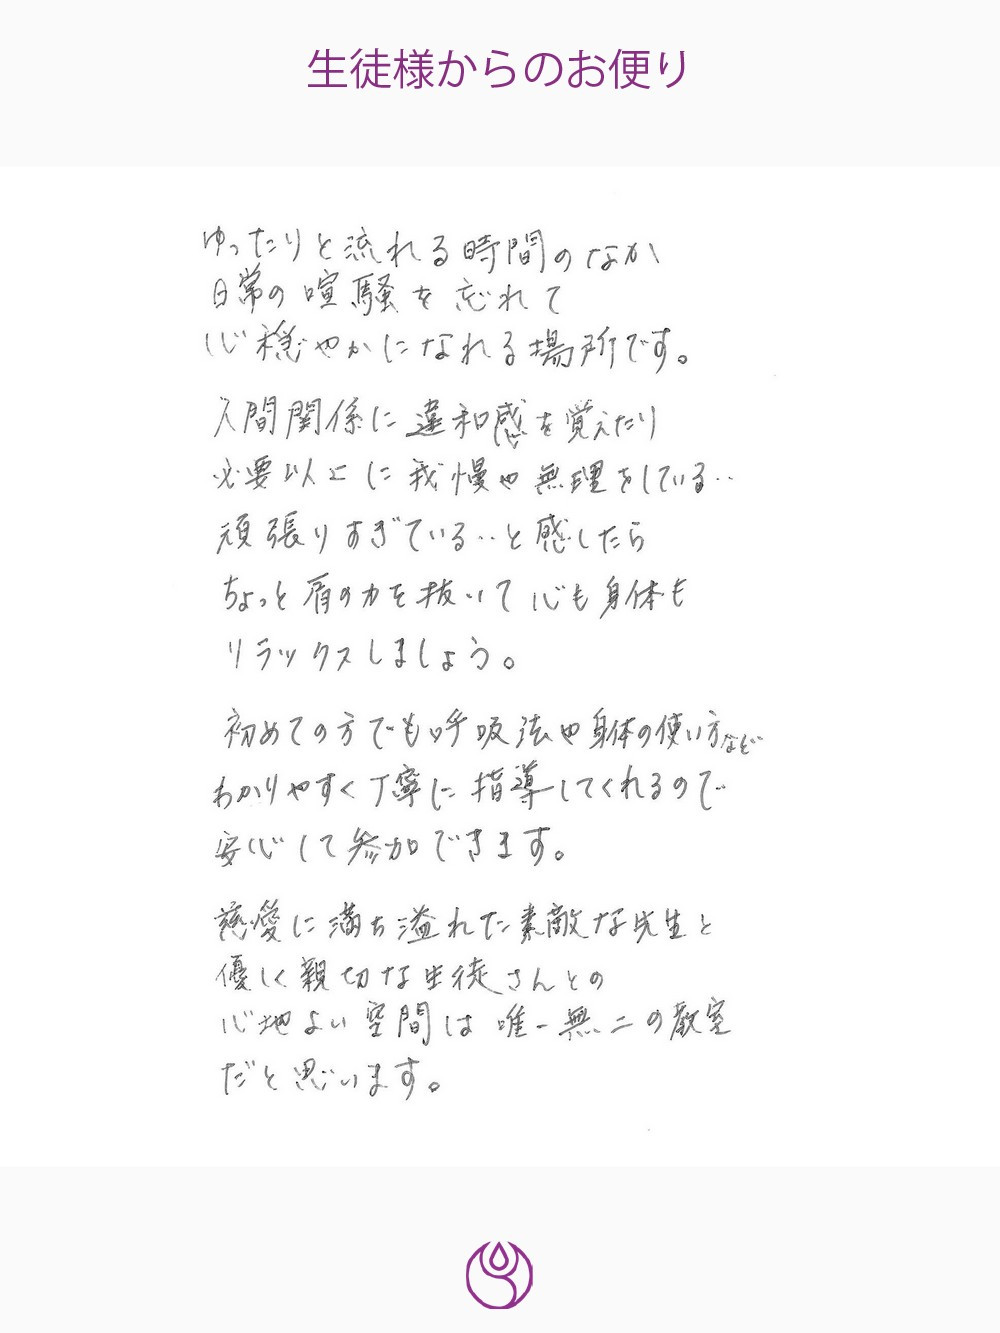 生徒様からのお便り
ゆったりと流れる時間のなか
日常の喧騒を忘れて
心穏やかになれる場所です。
人間関係に違和感を覚えたり
必要以上に我慢や無理をしている‥
頑張りすぎている‥と感したら
ちょっと肩の力を抜いて心も身体も
リラックスしましょう。
初めての方でも呼吸法や身体の使い方など
わかりやすく丁寧に指導してくれるので
安心して参加できます。
慈愛に満ち溢れた素敵な先生と
優しく親切な生徒さんとの
心地よい空間は唯一無二の教室
だと思います。